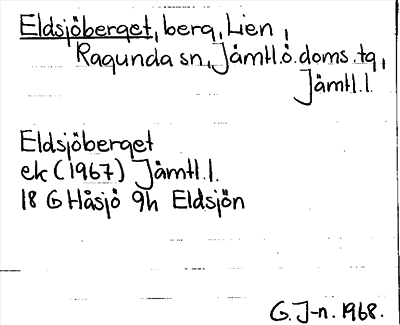 Eldsjöberget, berg, Lien,
Ragunda sn, Jämtl.ö.doms.tg,
Jämtl.l.
Eldsjöberget
ek (1967) Jämtl.l.
18 G Håsjö 9h Eldsjön
G. J-n. 1968.